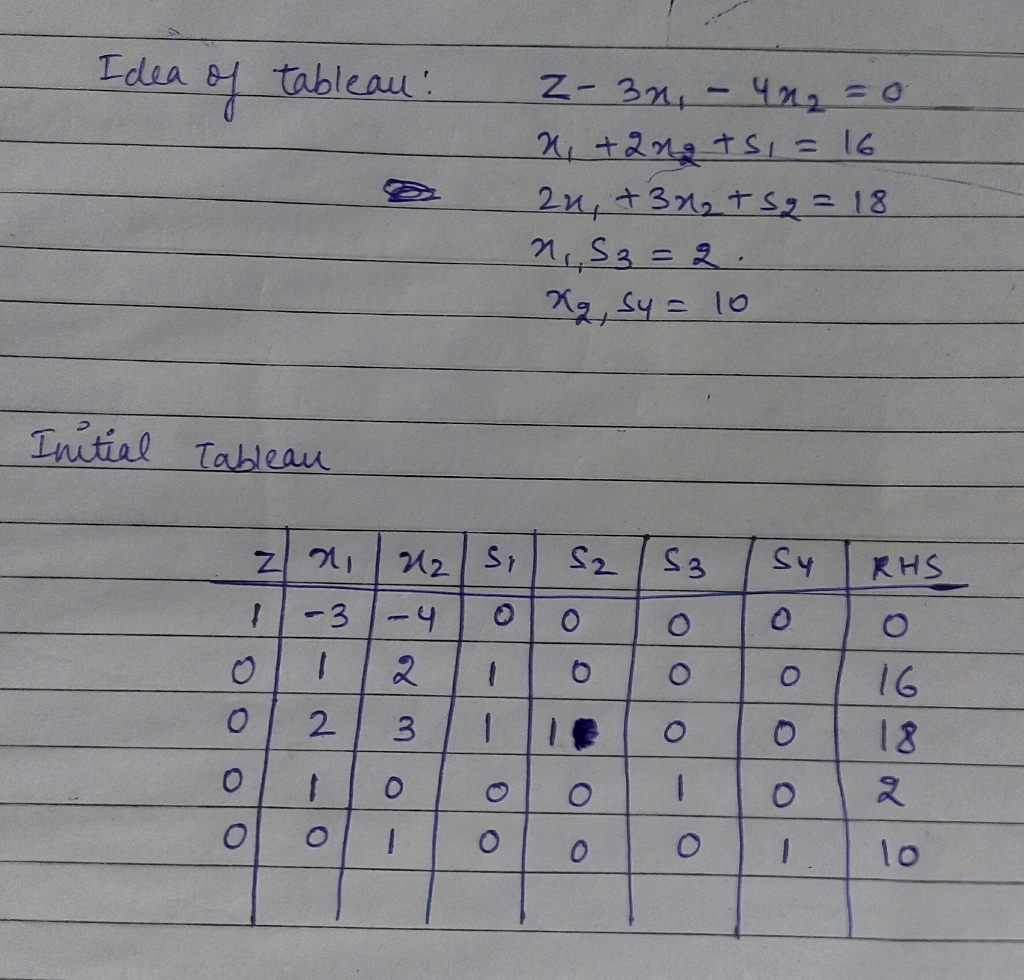 Idea of tableau: Z - 3x₁ - 4x₂ = 0
x₁ + 2x₂ + s₁ = 16
2x₁ + 3x₂ + s₂ = 18
x₁, s₃ = 2.
x₂, s₄ = 10
Initial Tableau
Z x₁ x₂ s₁ s₂ s₃ s₄ RHS
1 -3 -4 0 0 0 0 0
0 1 2 1 0 0 0 16
0 2 3 1 1 0 0 18
0 1 0 0 0 1 0 2
0 0 1 0 0 0 1 10